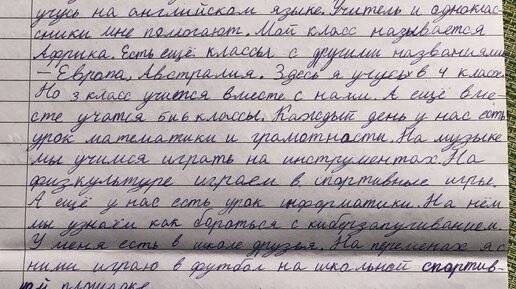 учусь на английском языке. Учитель и однокла-
ссники мне помогают. Мой класс называется
Африка. Есть ещё классы с другими названиями
– Европа, Австралия. Здесь я учусь в 4 классе.
Но 3 класс учится вместе с нами. А ещё вме-
сте учатся 5 и 6 классы. Каждый день у нас есть
урок математики и грамотности. На музыке
мы учимся играть на инструментах. На
физкультуре играем в спортивные игры.
А ещё у нас есть урок информатики. На нём
мы узнаём как бороться с киберзапугиванием.
У меня есть в школе друзья. На переменах я с
ними играю в футбол на школьной спортив-
ой площадке